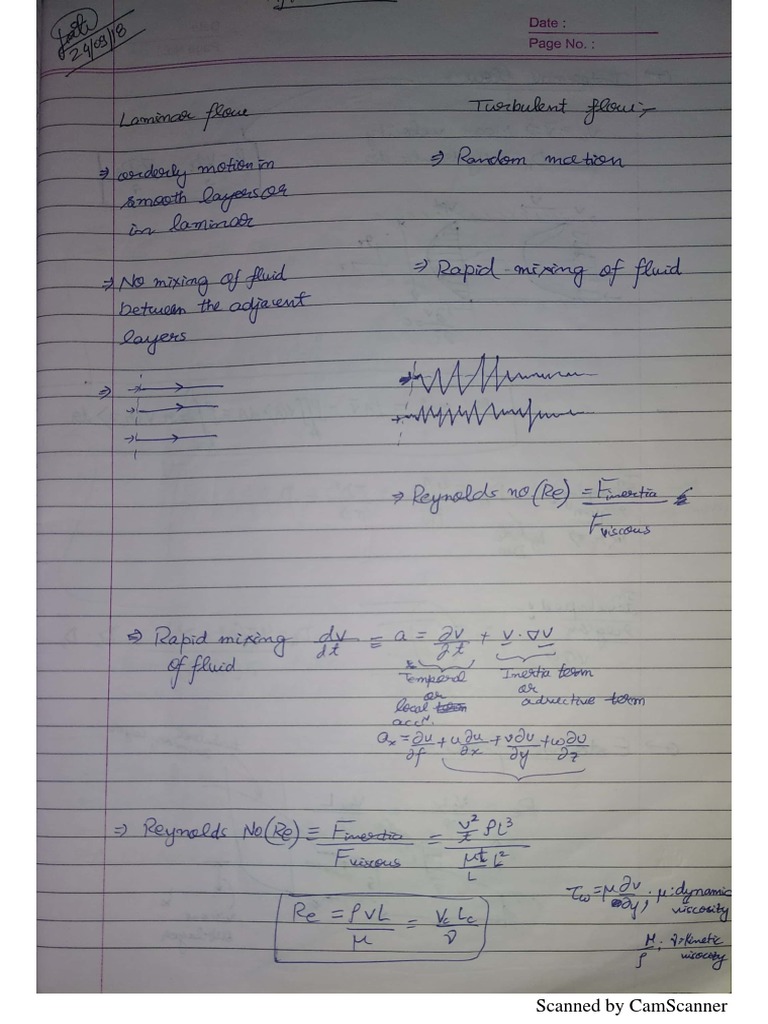 24/09/18
Date :
Page No. :
Laminar flow
Turbulent flow:-
⇒ orderly motion in
smooth layers or
in laminar
⇒ Random motion
⇒ No mixing of fluid
between the adjacent
layers
⇒ Rapid mixing of fluid
⇒ Reynolds no (Re) = Finertia / Fviscous
⇒ Rapid mixing dv/dt ≡ a = ∂v/∂t + v · ∇v
of fluid
Temporal or local term accⁿ.
Inertia term or advective term
ax = ∂u/∂t + u∂u/∂x + v∂u/∂y + w∂u/∂z
⇒ Reynolds No(Re) ≡ Finertia / Fviscous = (v²/L ρL³) / (μ v/L L²)
τw = μ ∂v/∂y, μ: dynamic
viscosity
Re = ρVL/μ = Vc Lc/ν
μ/ρ: ν: kinetic
viscocity
Scanned by CamScanner